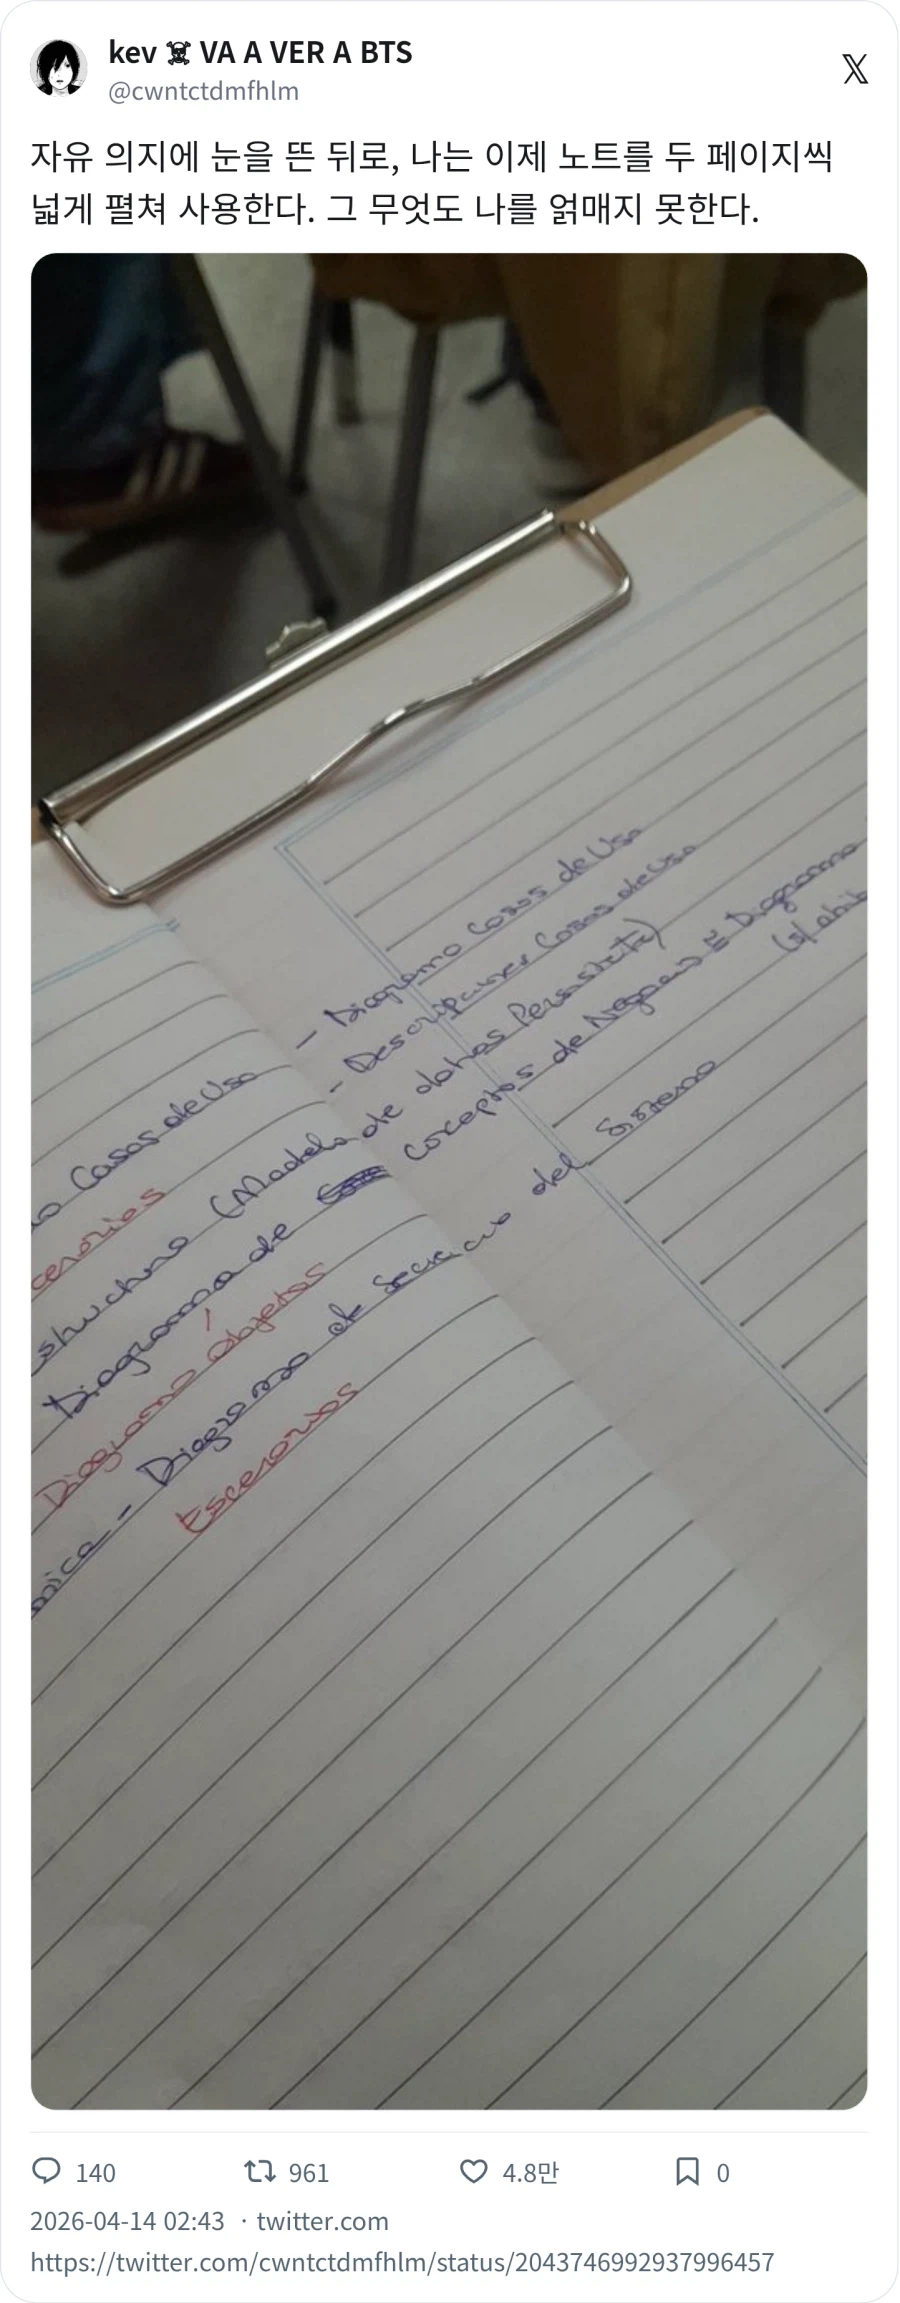 kev ☠ VA A VER A BTS
@cwntctdmfhlm
자유 의지에 눈을 뜬 뒤로, 나는 이제 노트를 두 페이지씩
넓게 펼쳐 사용한다. 그 무엇도 나를 얽매지 못한다.
- Diagrama Casos de Uso
Casos de Uso - Descripciones Casos de Uso
cenarios
structura (Modelo de datos Persistente)
Diagrama de Conceptos de Negocio = Diagrama
Diagrama Objetos
mica - Diagrama de Secuencia del Sistema
Escenarios
140
961
4.8만
0
2026-04-14 02:43 · twitter.com
https://twitter.com/cwntctdmfhlm/status/2043746992937996457